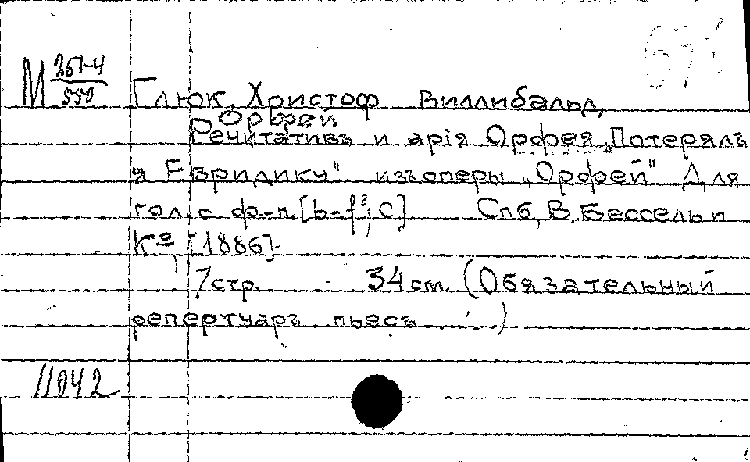 М 351-4/559
Глюк, Христоф Виллибальд,
Орфей
Речитативъ и арія Орфея „Потерялъ
я Евридику" изъ оперы „Орфей" Для
гол. с ф-п. [b-f²; C] Спб, В. Бессель и
Kº [1886].
7 стр. 34 см. (Обязательный
репертуаръ пьесъ )
11042